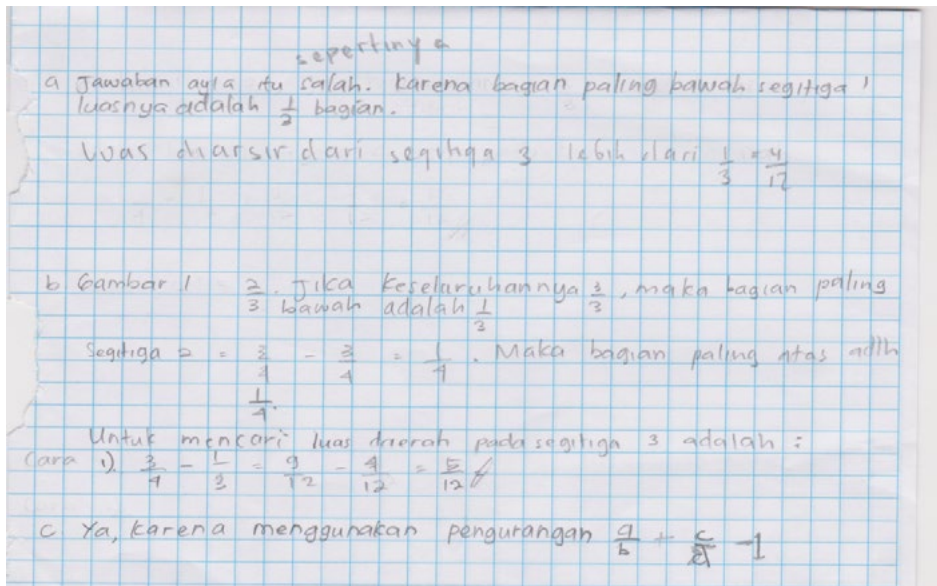 sepertinya
a Jawaban ayla itu salah. Karena bagian paling bawah segitiga 1
luasnya adalah 1/3 bagian.
Luas diarsir dari segitiga 3 lebih dari 1/3 = 4/12
b Gambar 1 2/3. Jika keselaruhannya 3/3, maka bagian paling
bawah adalah 1/3
Segitiga 2 = - 3/4 = 1/4. Maka bagian paling atas adlh
1/4.
Untuk mencari luas daerah pada segitiga 3 adalah :
Cara 1). 3/4 - 1/3 = 9/12 - 4/12 = 5/12
c Ya, karena menggunakan pengurangan a/b + c/d - 1